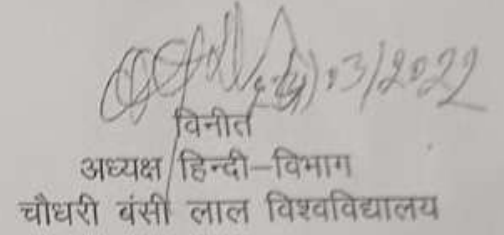 03/2022
विनीत
अध्यक्ष हिन्दी-विभाग
चौधरी बंसी लाल विश्वविद्यालय